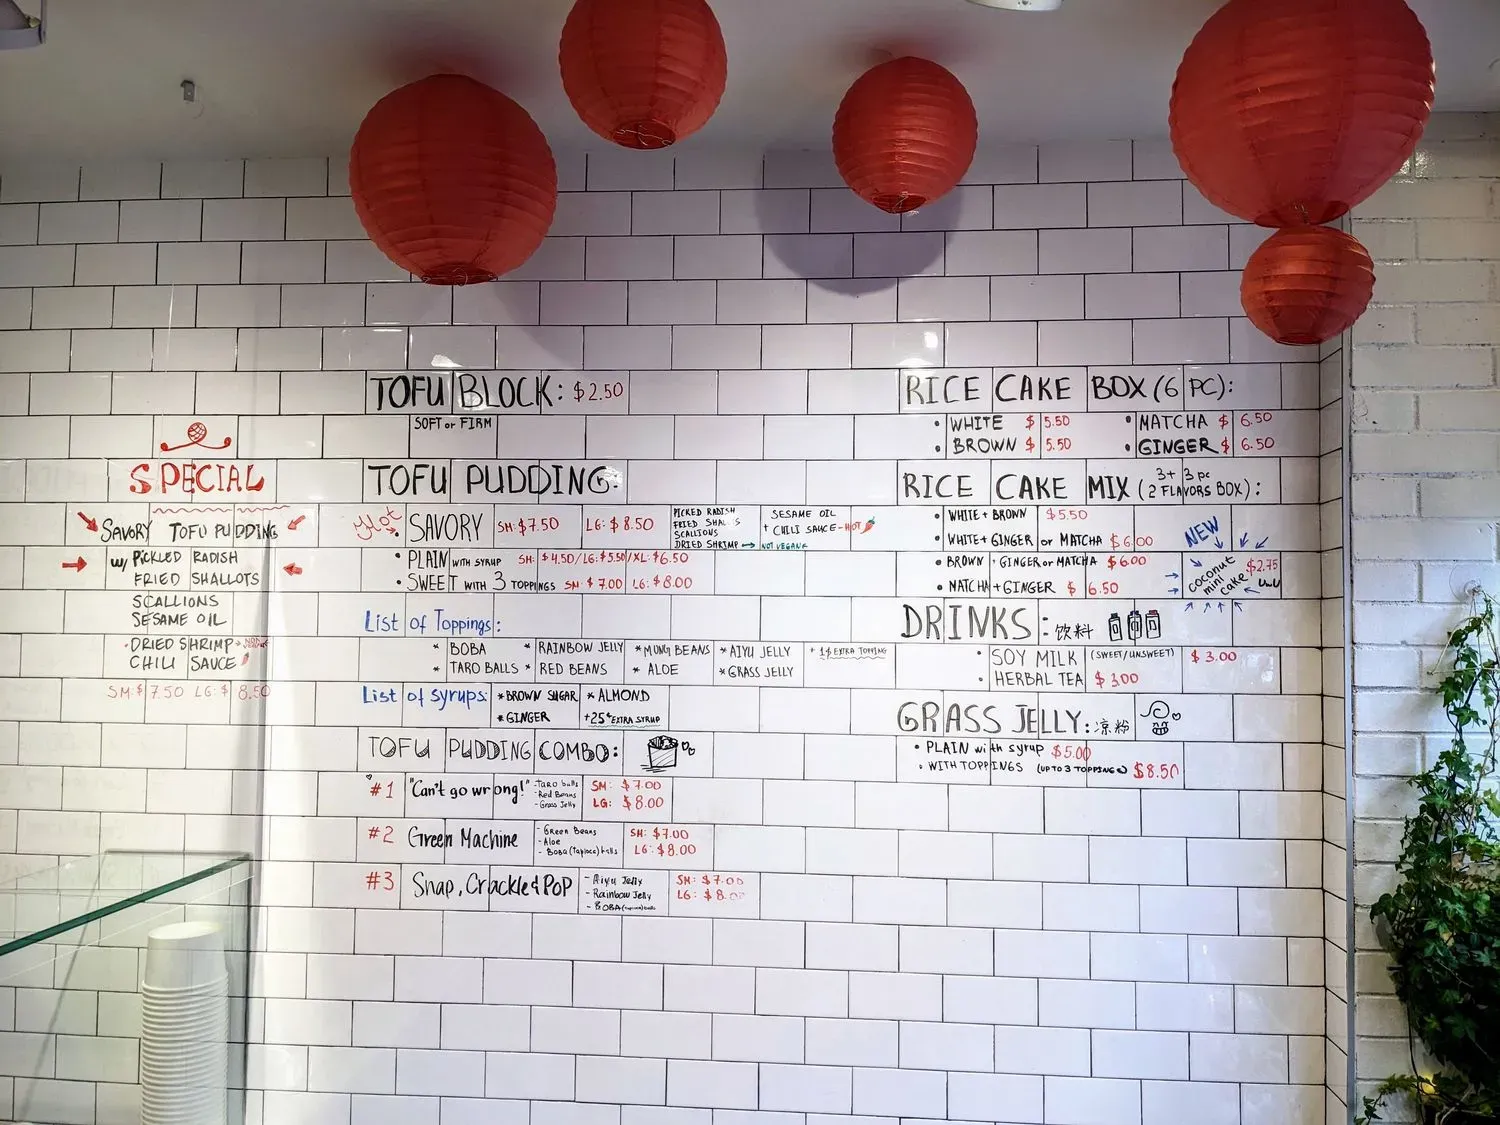 SPECIAL
SAVORY TOFU PUDDING
w/ PICKLED RADISH
FRIED SHALLOTS
SCALLIONS
SESAME OIL
• DRIED SHRIMP →
CHILI SAUCE
SM: $7.50 LG: $8.50
TOFU BLOCK: $2.50
SOFT or FIRM
TOFU PUDDING:
Hot
• SAVORY SM: $7.50 LG: $8.50
PICKED RADISH
FRIED SHAL S
SCALLIONS
DRIED SHRIMP → NOT VEGAN
SESAME OIL
+ CHILI SAUCE - HOT
• PLAIN WITH SYRUP SM: $4.50/LG: $5.50/XL: $6.50
• SWEET WITH 3 TOPPINGS SM: $7.00 LG: $8.00
List of Toppings:
* BOBA * RAINBOW JELLY * MUNG BEANS * AIYU JELLY + 1$ EXTRA TOPPING
* TARO BALLS * RED BEANS * ALOE * GRASS JELLY
List of syrups: * BROWN SUGAR * ALMOND
* GINGER +25¢ EXTRA SYRUP
TOFU PUDDING COMBO:
#1 "Can't go wrong!"
- TARO balls
- Red Beans
- Grass Jelly
SM: $7.00
LG: $8.00
#2 Green Machine
- Green Beans
- Aloe
- Boba (tapioca) balls
SM: $7.00
LG: $8.00
#3 Snap, Crackle & POP
- Aiyu Jelly
- Rainbow Jelly
- BOBA (tapioca) balls
SM: $7.00
LG: $8.00
RICE CAKE BOX (6 PC):
• WHITE $5.50 • MATCHA $6.50
• BROWN $5.50 • GINGER $6.50
RICE CAKE MIX 3 + 3 pc (2 FLAVORS BOX):
• WHITE + BROWN $5.50
• WHITE + GINGER or MATCHA $6.00
• BROWN + GINGER or MATCHA $6.00
• MATCHA + GINGER $6.50
NEW
coconut
mini
cake $2.75
UwU
DRINKS: 饮料
• SOY MILK (SWEET/UNSWEET) $3.00
• HERBAL TEA $3.00
GRASS JELLY: 凉粉
• PLAIN with syrup $5.00
• WITH TOPPINGS (UP TO 3 TOPPINGS) $8.50